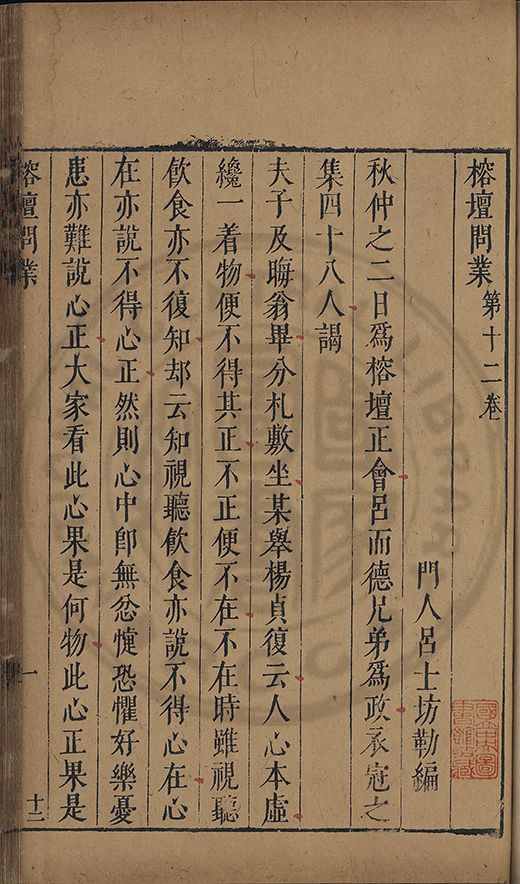 榕壇問業第十二卷
門人呂士坊勒編
秋仲之二日為榕壇正會呂而德兄弟為政承寇之
集四十八人謁
夫子及晦翁畢分札敷坐某舉楊貞復云人心本虛
纔一着物便不得其正不正便不在不在時雖視聽
飲食亦不復知却云知視聽飲食亦說不得心在心
在亦說不得心正然則心中卽無忿懥恐懼好樂憂
患亦難說心正大家看此心果是何物此心正果是
榕壇問業
一
十二
國立中央圖書館收藏